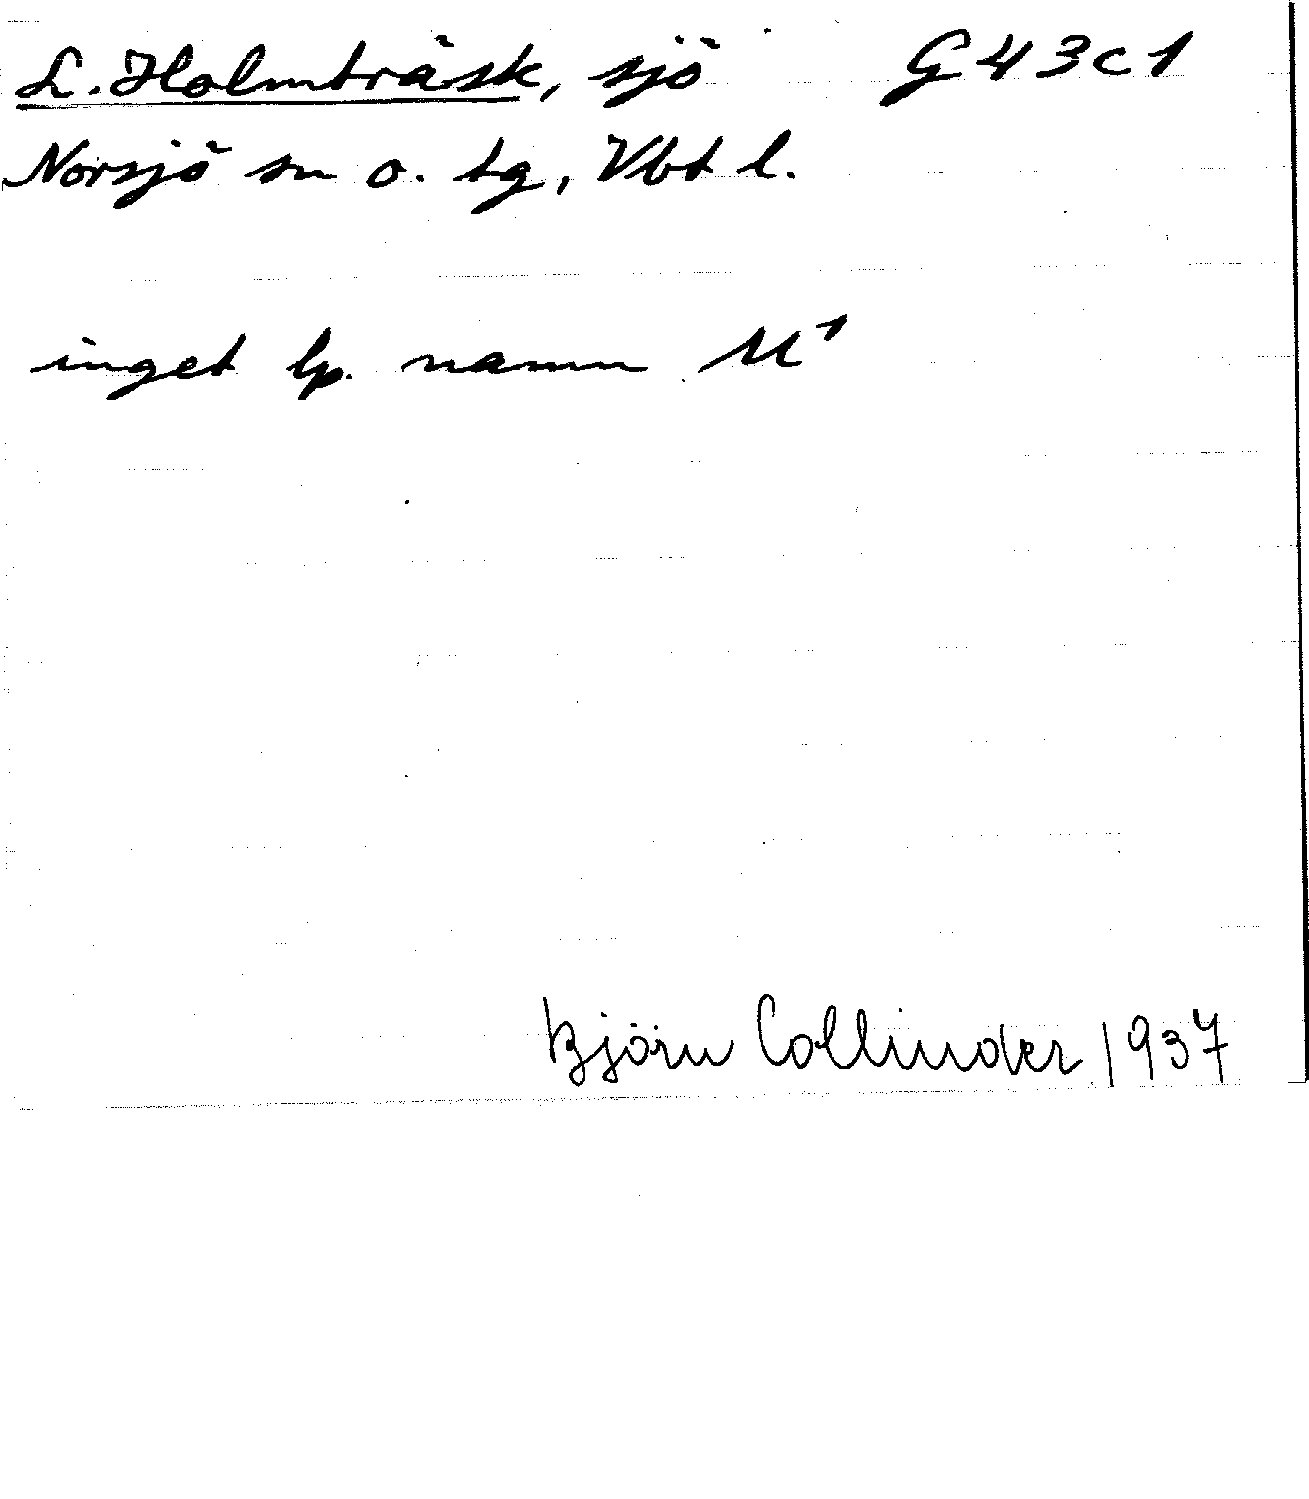 L. Holmträsk, sjö G43c1
Norsjö sn o. tg, Vbt l.
inget lp. namn M¹
Björn Collinder 1937